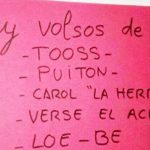 y VOLSOS de
- TOOSS-
- PUITON-
- CAROL "LA HER
- VERSE EL AC
- LOE-BE